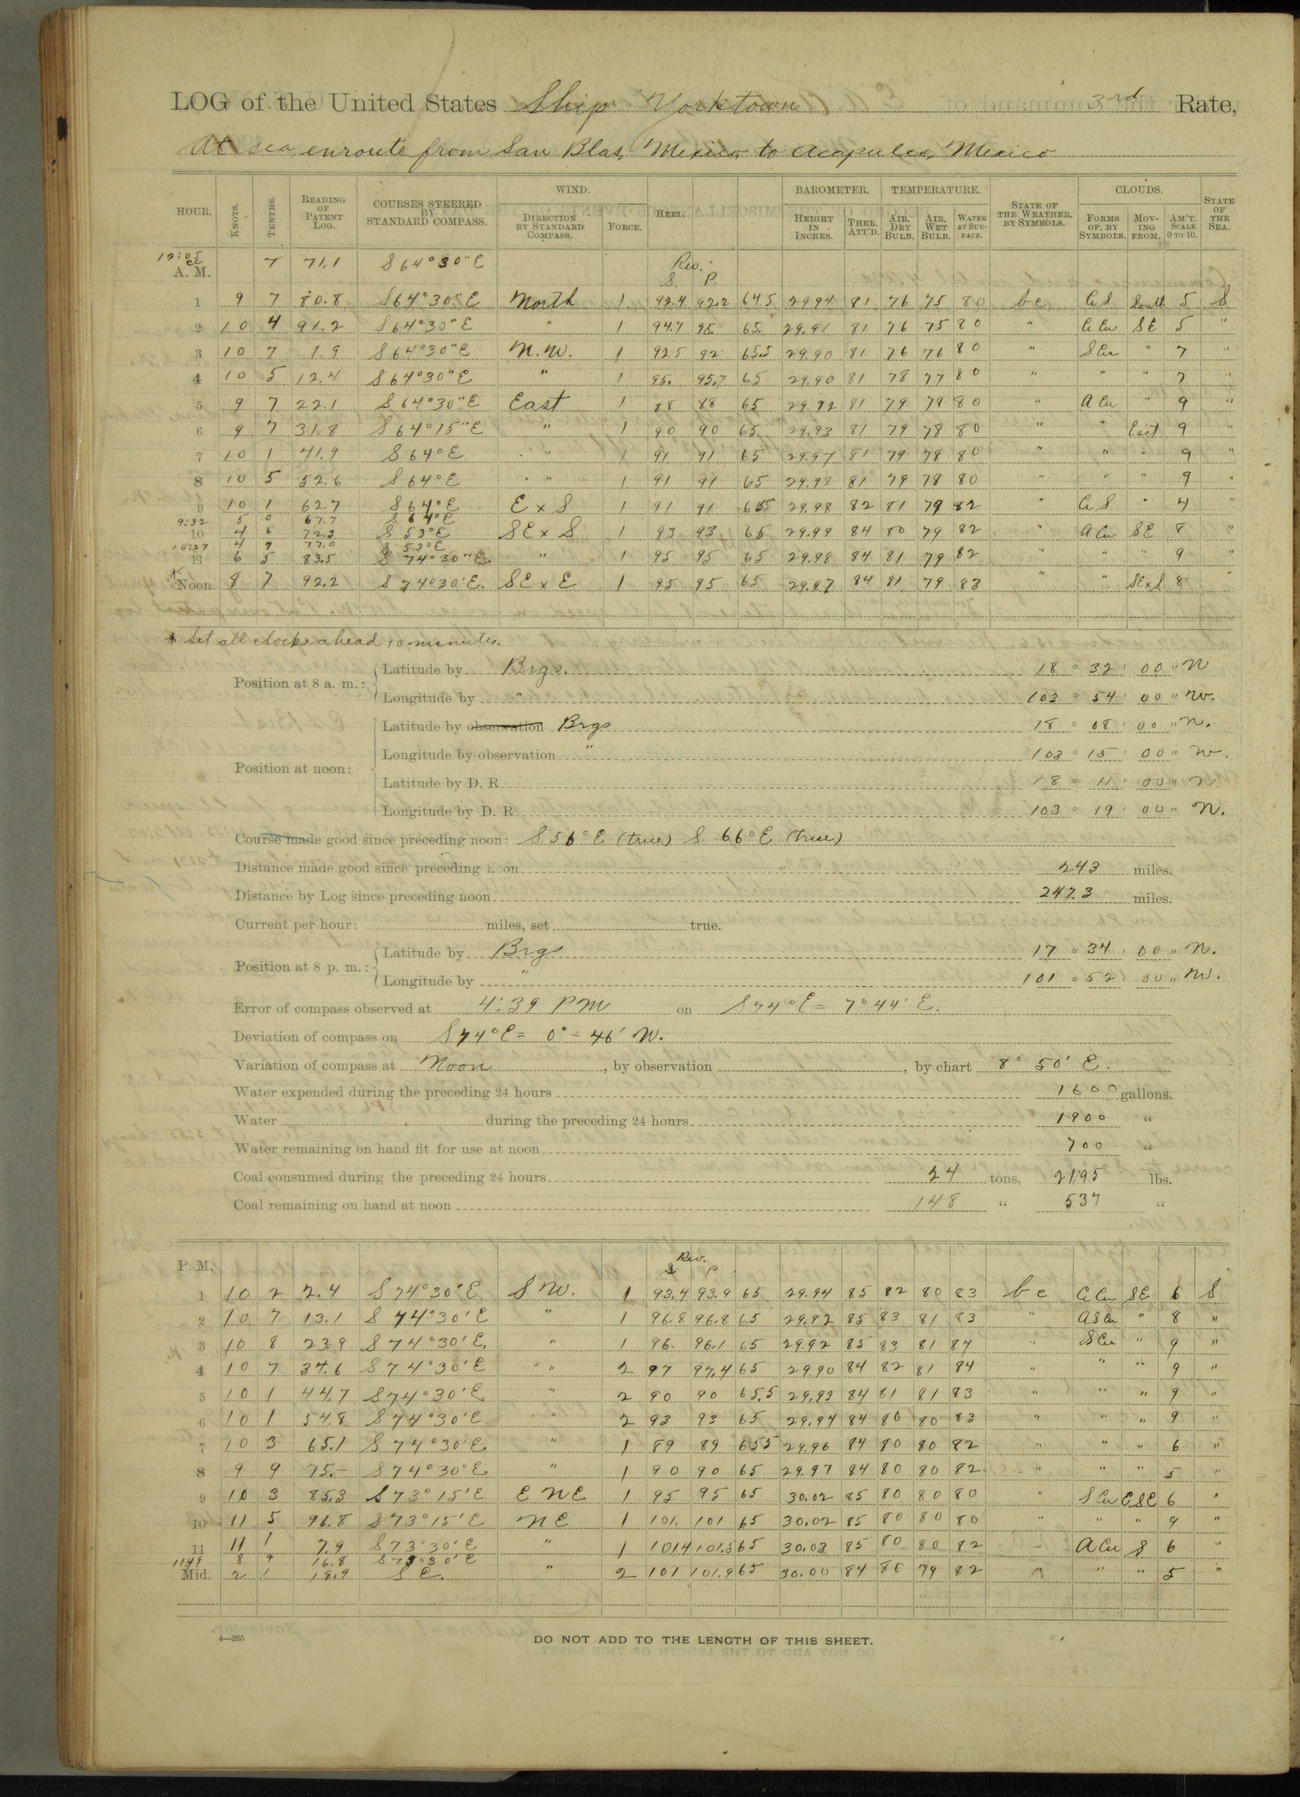 LOG of the United States Ship Yorktown 3rd Rate,
At sea, enroute from San Blas, Mexico to Acapulco, Mexico
WIND. BAROMETER. TEMPERATURE. CLOUDS.
HOUR. KNOTS. TENTHS. READING OF PATENT LOG. COURSES STEERED BY STANDARD COMPASS. DIRECTION BY STANDARD COMPASS. FORCE. HEEL. HEIGHT IN INCHES. THER. ATT'D. AIR, DRY BULB. AIR, WET BULB. WATER AT SURFACE. STATE OF THE WEATHER, BY SYMBOLS. FORMS OF, BY SYMBOLS. MOVING FROM. AM'T. SCALE 0 TO 10. STATE OF THE SEA.
12:05 A. M. 7 71.1 S 64° 30" E Rev. S. P.
1 9 7 80.8 S 64° 30" E North 1 92.4 92.2 64.5 29.94 81 76 75 80 bc Ci S South 5 S
2 10 4 91.2 S 64° 30" E " 1 94.7 95. 65. 29.91 81 76 75 80 " Ci Cu SE 5 "
3 10 7 1.9 S 64° 30" E N.W. 1 92.5 92 65.5 29.90 81 76 76 80 " S Cu " 7 "
4 10 5 12.4 S 64° 30" E " 1 95. 95.7 65 29.90 81 78 77 80 " " " 7 "
5 9 7 22.1 S 64° 30" E East 1 88 88 65 29.92 81 79 78 80 " A Cu " 9 "
6 9 7 31.8 S 64° 15" E " 1 90 90 65 29.93 81 79 78 80 " " East 9 "
7 10 1 41.9 S 64° E " 1 91 91 65 29.97 81 79 78 80 " " " 9 "
8 10 5 52.6 S 64° E " 1 91 91 65 29.98 81 79 78 80 " " " 9 "
9 10 1 62.7 S 64° E E x S 1 91 91 65 29.98 82 81 79 82 " Ci S " 4 "
9:32 5 0 67.7 S 64° E
10 4 6 72.3 S 53° E SE x S 1 93 93 65 29.99 84 80 79 82 " A Cu SE 8 "
10:27 4 7 77.0 S 53° E
11 6 5 83.5 S 74° 30" E. " 1 95 95 65 29.98 84 81 79 82 " " " 9 "
* Noon. 8 7 92.2 S 74° 30' E. SE x E 1 95 95 65 29.97 84 81 79 83 " " SExS 8
* Set all clocks ahead 10 minutes.
Position at 8 a. m.: Latitude by Brgs. 18 ° 32 ' 00 " N
Longitude by " 103 ° 54 ' 00 " W.
Position at noon: Latitude by observation Brgs 18 ° 08 ' 00 " N.
Longitude by observation " 103 ° 15 ' 00 " W.
Latitude by D. R. 18 ° 11 ' 00 " N
Longitude by D. R. 103 ° 19 ' 00 " W.
Course made good since preceding noon: S 56° E (true) S 66° E (true)
Distance made good since preceding noon 243 miles.
Distance by Log since preceding noon 247.3 miles.
Current per hour: miles, set true.
Position at 8 p. m.: Latitude by Brgs 17 ° 34 ' 00 " N.
Longitude by " 101 ° 52 ' 00 " W.
Error of compass observed at 4:39 PM on S 74° E = 7° 44' E.
Deviation of compass on S 74° E = 0° - 46' W.
Variation of compass at Noon, by observation , by chart 8° 50' E.
Water expended during the preceding 24 hours 1600 gallons.
Water during the preceding 24 hours 1900 "
Water remaining on hand fit for use at noon 700 "
Coal consumed during the preceding 24 hours 24 tons, 2195 lbs.
Coal remaining on hand at noon 148 " 537 "
P. M. Rev. S P
1 10 2 2.4 S 74° 30' E S W. 1 93.4 93.9 65 29.94 85 82 80 83 bc C Cu SE 6 S
2 10 7 13.1 S 74° 30' E " 1 96.8 96.8 65 29.92 85 83 81 83 " A S Cu " 8 "
3 10 8 23.9 S 74° 30' E. " 1 96. 96.1 65 29.92 85 83 81 84 S Cu " 9 "
4 10 7 34.6 S 74° 30' E " 2 97 97.4 65 29.90 84 82 81 84 " " 9 "
5 10 1 44.7 S 74° 30' E " 2 90 90 65.5 29.93 84 81 81 83 " " " 9 "
6 10 1 54.8 S 74° 30' E " 2 93 93 65 29.94 84 80 80 83 " " " 9 "
7 10 3 65.1 S 74° 30' E " 1 89 89 65.5 29.96 84 80 80 82 " " " 6 "
8 9 9 75.- S 74° 30' E " 1 90 90 65 29.97 84 80 80 82 " " " 5 "
9 10 3 85.3 S 73° 15' E E NE 1 95 95 65 30.02 85 80 80 80 " S Cu ESE 6 "
10 11 5 96.8 S 73° 15' E NE 1 101. 101 65 30.02 85 80 80 80 " " " 9 "
11 11 1 7.9 S 73° 30' E " 1 101.4 101.5 65 30.03 85 80 80 82 " A Cu S 6 "
11:49 8 9 16.8 S 73° 30' E
Mid. 2 1 18.9 S E. " 2 101 101.9 65 30.00 84 80 79 82 " " " 5 "
4—265
DO NOT ADD TO THE LENGTH OF THIS SHEET.